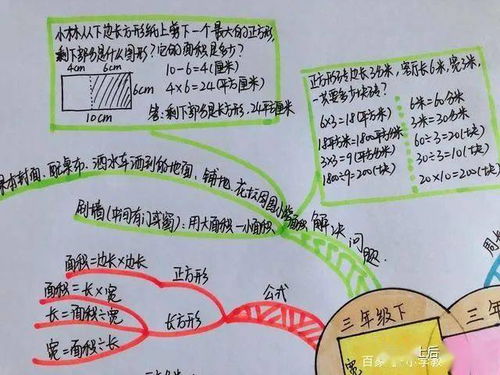 小林从下边长方形纸上剪下一个最大的正方形,
剩下部分是什么图形?它的面积是多少?
4cm 6cm
6cm
10cm
10-6=4(厘米)
4×6=24(平方厘米)
答:剩下部分是长方形,24平方厘米
正方形砖边长3分米,客厅长6米,宽3米,
一共要多少块砖?
6×3=18(平方米)
18平方米=1800平方分米
3×3=9(平方分米)
1800÷9=200(块)
6米=60分米
3米=30分米
60÷3=20(块)
30÷3=10(块)
20×10=200(块)
课本封面、配桌布、洒水车洒到的地面、铺地、花坛周围小路面积
刷墙(中间有门或窗):用大面积-小面积
解决问题
面积=边长×边长
正方形
面积=长×宽
长=面积÷宽
宽=面积÷长
长方形
公式
三年级下
三年
周
宽
上后
百家 小学教